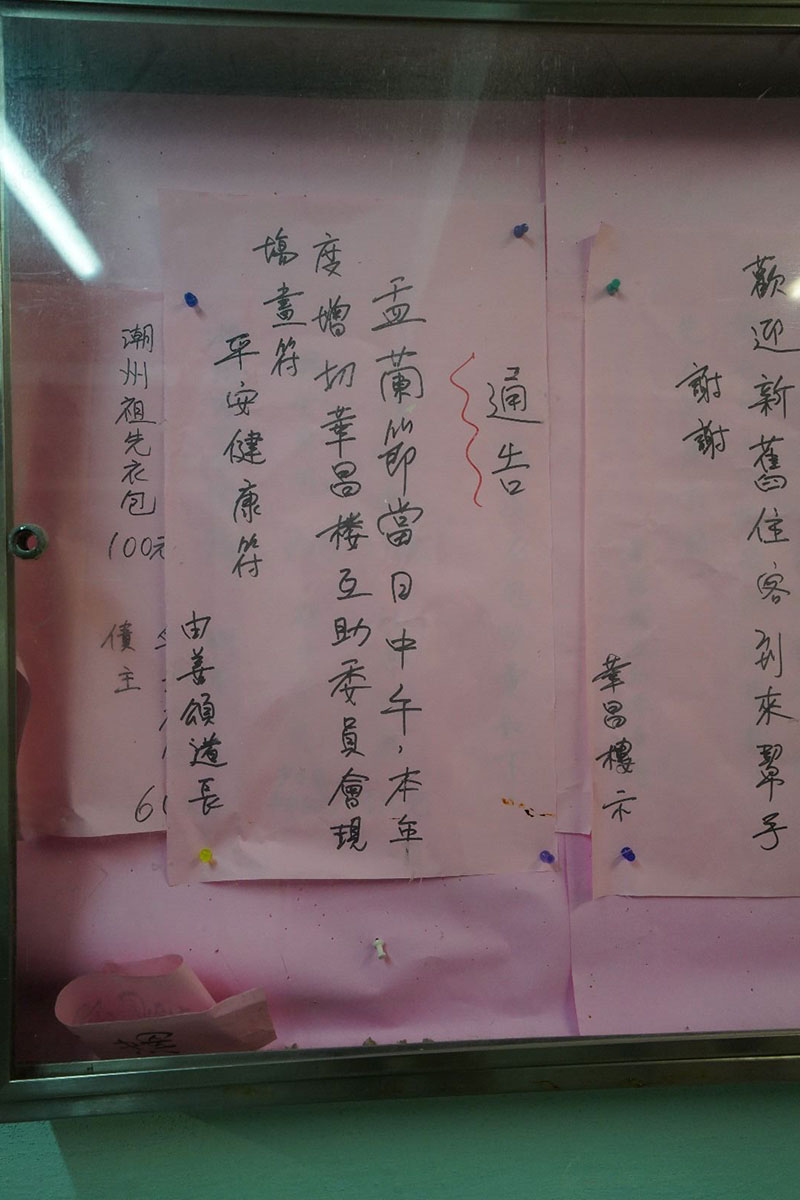 歡迎新舊住客到來幫手
謝謝
華昌樓示
通告
盂蘭節當日中午，本年
度增切華昌楼互助委員會現
塲畫符
平安健康符
由善頌道長
潮州祖先衣包 100元
債主